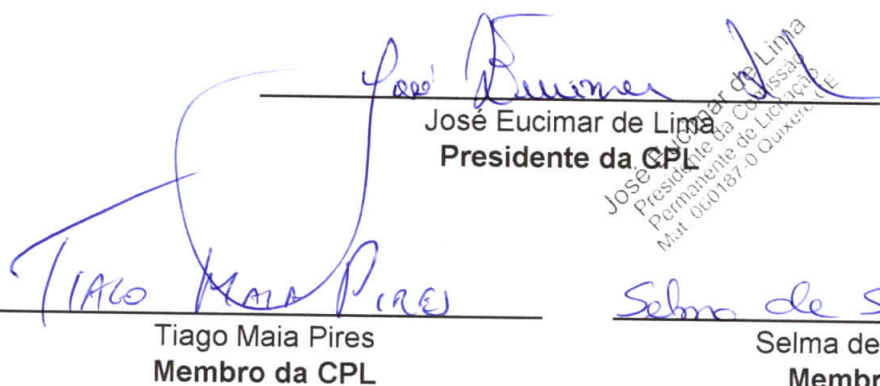 José Eucimar de Lima
José Eucimar de Lima
Presidente da CPL
José Eucimar de Lima
Presidente da Comissão
Permanente de Licitação
Mat. 060187-0 Quixeré-CE
TIAGO MAIA PIRES
Tiago Maia Pires
Membro da CPL
Selma de S
Selma de
Membr